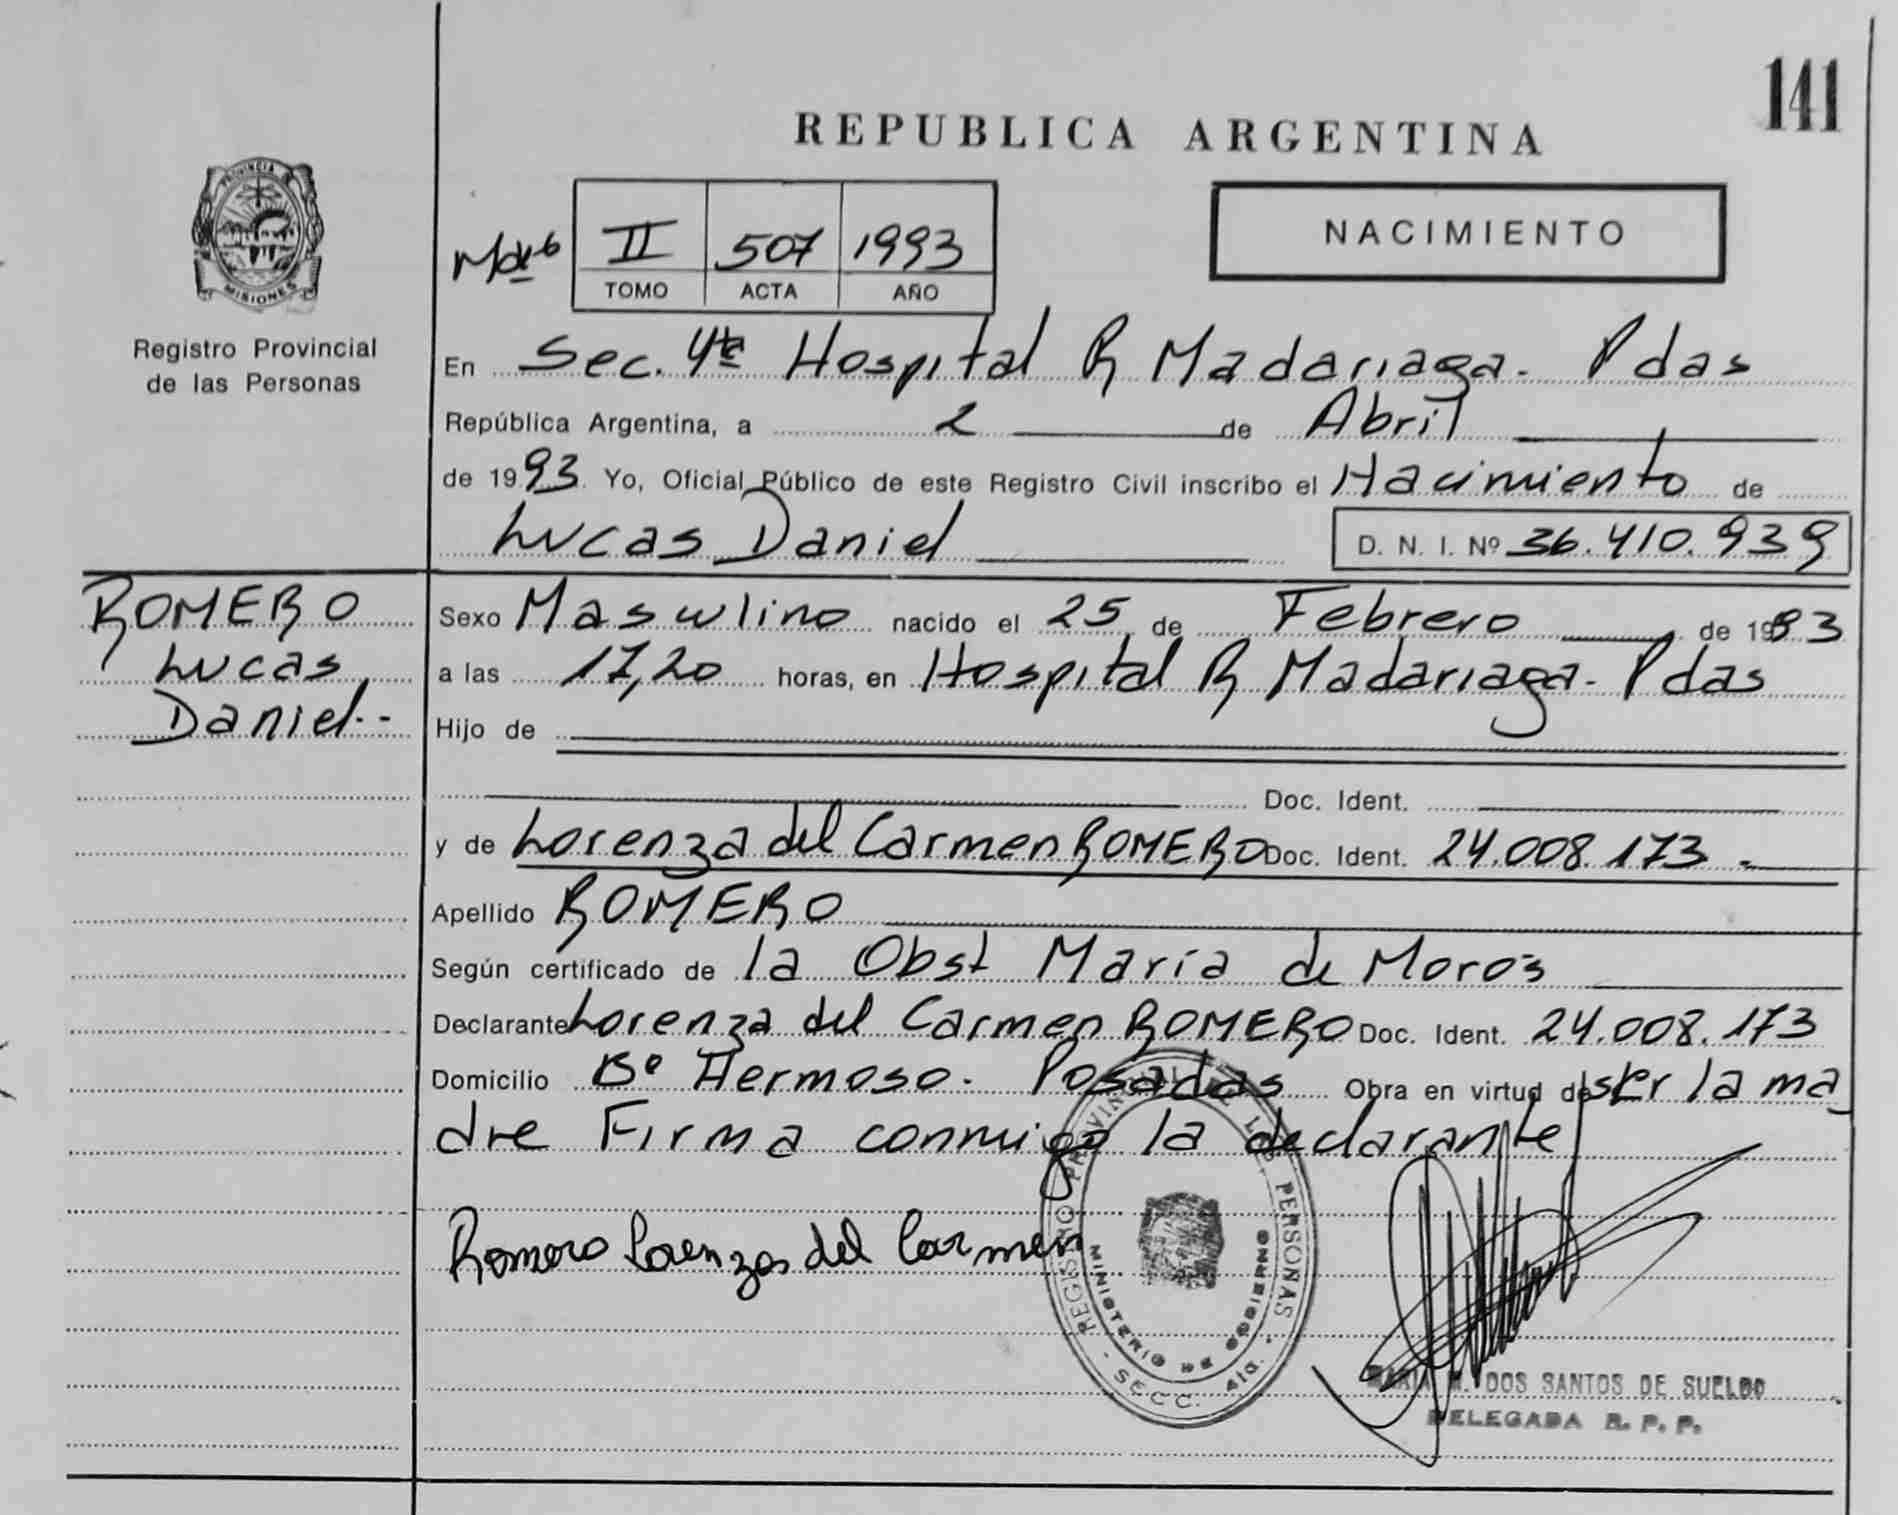 141
REPUBLICA ARGENTINA
PROVINCIA DE
MISIONES
Registro Provincial
de las Personas
II 507 1993
TOMO ACTA AÑO
NACIMIENTO
En Sec. 4ta Hospital R Madariaga. Pdas
República Argentina, a 2 de Abril
de 1993. Yo, Oficial Público de este Registro Civil inscribo el Nacimiento de
Lucas Daniel D. N. I. Nº 36.410.939
ROMERO
Lucas
Daniel.--
Sexo Masculino nacido el 25 de Febrero de 1993
a las 17,20 horas, en Hospital R Madariaga- Pdas
Hijo de
Doc. Ident.
y de Lorenza del Carmen ROMERO Doc. Ident. 24.008.173 -
Apellido ROMERO
Según certificado de la Obst María de Moros
Declarante Lorenza del Carmen ROMERO Doc. Ident. 24.008.173
Domicilio Bº Hermoso. Posadas Obra en virtud de ser la ma
dre Firma conmigo la declarante
Romero Lorenza del Carmen
REGISTRO PROVINCIAL DE LAS PERSONAS
MINISTERIO DE GOBIERNO
- SECC. 4ta. -
M. DOS SANTOS DE SUELDO
DELEGADA R. P. P.